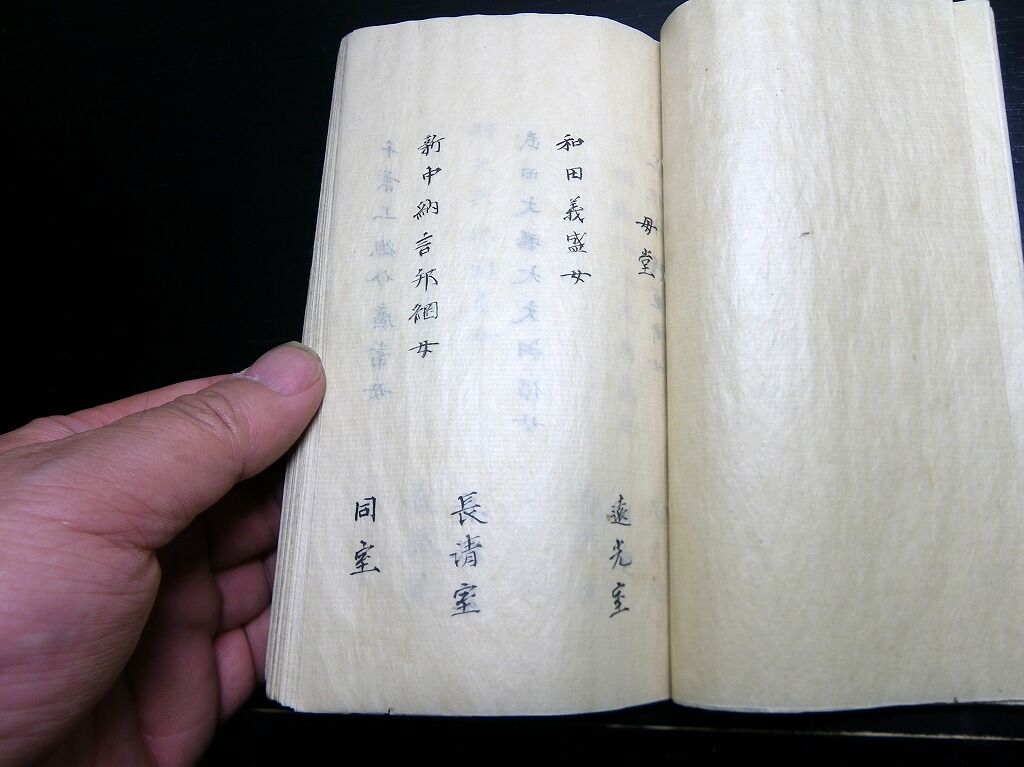 母堂
遠光室
和田義盛女
長清室
新中納言邦綱女
同室